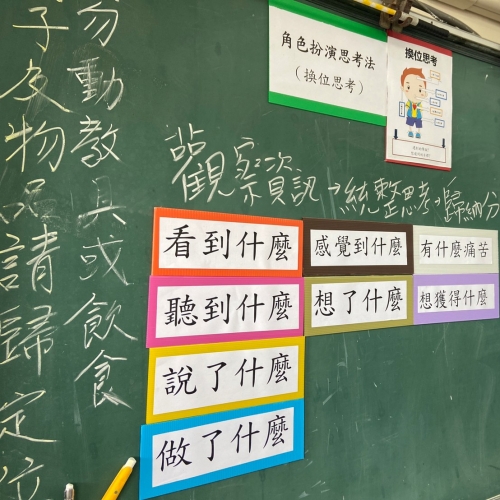 勿動教具或飲食
子及物品請歸定位
角色扮演思考法
（換位思考）
換位思考
觀察資訊→統整思考→歸納分
看到什麼
感覺到什麼
有什麼痛苦
聽到什麼
想了什麼
想獲得什麼
說了什麼
做了什麼